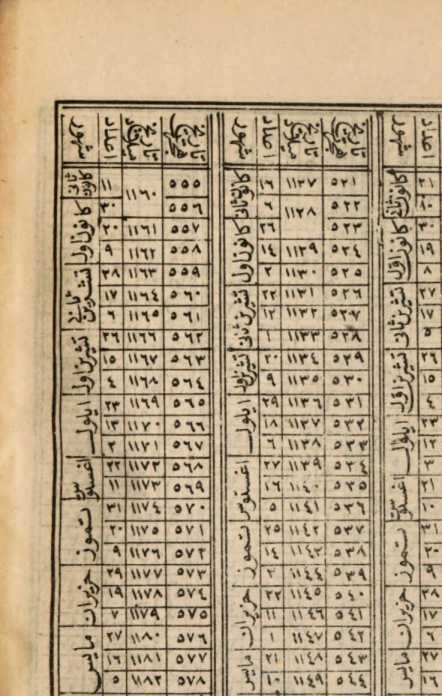 احاد شهور
كانون ثاني
٢١
٣٠ كانون اول
١٩
٨
٢٧ تشرين ثاني
١٧
٥
٢٦ تشرين اول
١٥
٤
٢٣ ايلول
١٢
٣
٢١ اغستوس
١٠
٣١ تموز
٢٠
٩
٢٨ حزيران
١٧
٦
٢٧ مايس
١٦
تاريخ هجري تاريخ ميلادي احاد شهور
٥٢١ ١١٢٧ ١٦ كانون ثاني
٥٢٢ ١١٢٨ ٦
٥٢٣ ٢٦ كانون اول
٥٢٤ ١١٢٩ ١٤
٥٢٥ ١١٣٠ ٢
٥٢٦ ١١٣١ ٢٢ تشرين ثاني
٥٢٧ ١١٣٢ ١٢
٥٢٨ ١١٣٣ ١
٥٢٩ ١١٣٤ ٢٠ تشرين اول
٥٣٠ ١١٣٥ ٩
٥٣١ ١١٣٦ ٢٩ ايلول
٥٣٢ ١١٣٧ ١٨
٥٣٣ ١١٣٨ ٦
٥٣٤ ١١٣٩ ٢٧ اغستوس
٥٣٥ ١١٤٠ ١٦
٥٣٦ ١١٤١ ٥
٥٣٧ ١١٤٢ ٢٥ تموز
٥٣٨ ١١٤٣ ١٤
٥٣٩ ١١٤٤ ٢
٥٤٠ ١١٤٥ ٢٢ حزيران
٥٤١ ١١٤٦ ١١
٥٤٢ ١١٤٧ ١
٥٤٣ ١١٤٨ ٢١ مايس
٥٤٤ ١١٤٩ ١٠
تاريخ هجري تاريخ ميلادي احاد شهور
٥٥٥ ١١٦٠ ١١ كانون ثاني
٥٥٦ ٣٠ كانون اول
٥٥٧ ١١٦١ ٢٠
٥٥٨ ١١٦٢ ٩
٥٥٩ ١١٦٣ ٢٨ تشرين ثاني
٥٦٠ ١١٦٤ ١٧
٥٦١ ١١٦٥ ٦
٥٦٢ ١١٦٦ ٢٦ تشرين اول
٥٦٣ ١١٦٧ ١٥
٥٦٤ ١١٦٨ ٤
٥٦٥ ١١٦٩ ٢٣ ايلول
٥٦٦ ١١٧٠ ١٣
٥٦٧ ١١٧١ ٢
٥٦٨ ١١٧٢ ٢٢ اغستوس
٥٦٩ ١١٧٣ ١١
٥٧٠ ١١٧٤ ٣١ تموز
٥٧١ ١١٧٥ ٢٠
٥٧٢ ١١٧٦ ٩
٥٧٣ ١١٧٧ ٢٩ حزيران
٥٧٤ ١١٧٨ ١٩
٥٧٥ ١١٧٩ ٧
٥٧٦ ١١٨٠ ٢٧ مايس
٥٧٧ ١١٨١ ١٦
٥٧٨ ١١٨٢ ٥